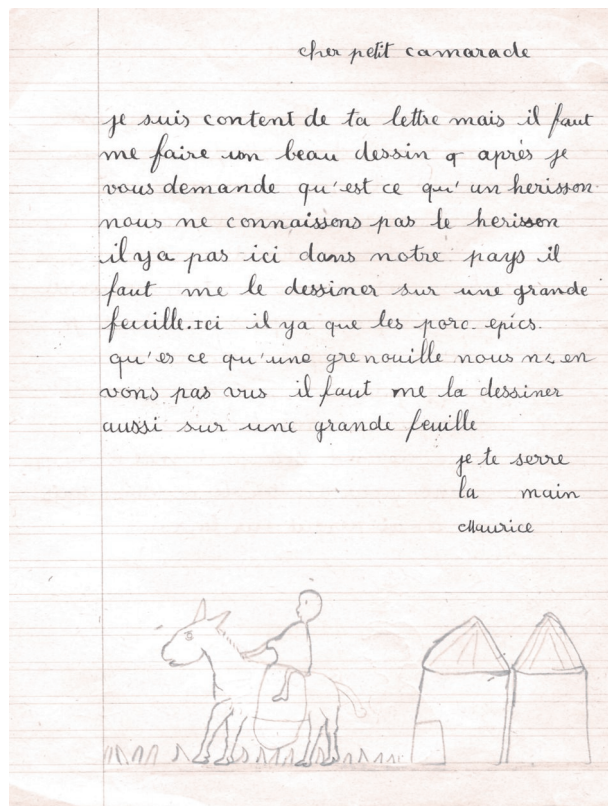 cher petit camarade
je suis content de ta lettre mais il faut
me faire un beau dessin et après je
vous demande qu'est ce qu' un herisson
nous ne connaissons pas le herisson
il ya pas ici dans notre pays il
faut me le dessiner sur une grande
feuille. ici il ya que les porc. epics.
qu'es ce qu'une grenouille nous n en
vons pas vus il faut me la dessiner
aussi sur une grande feuille
je te serre
la main
Maurice